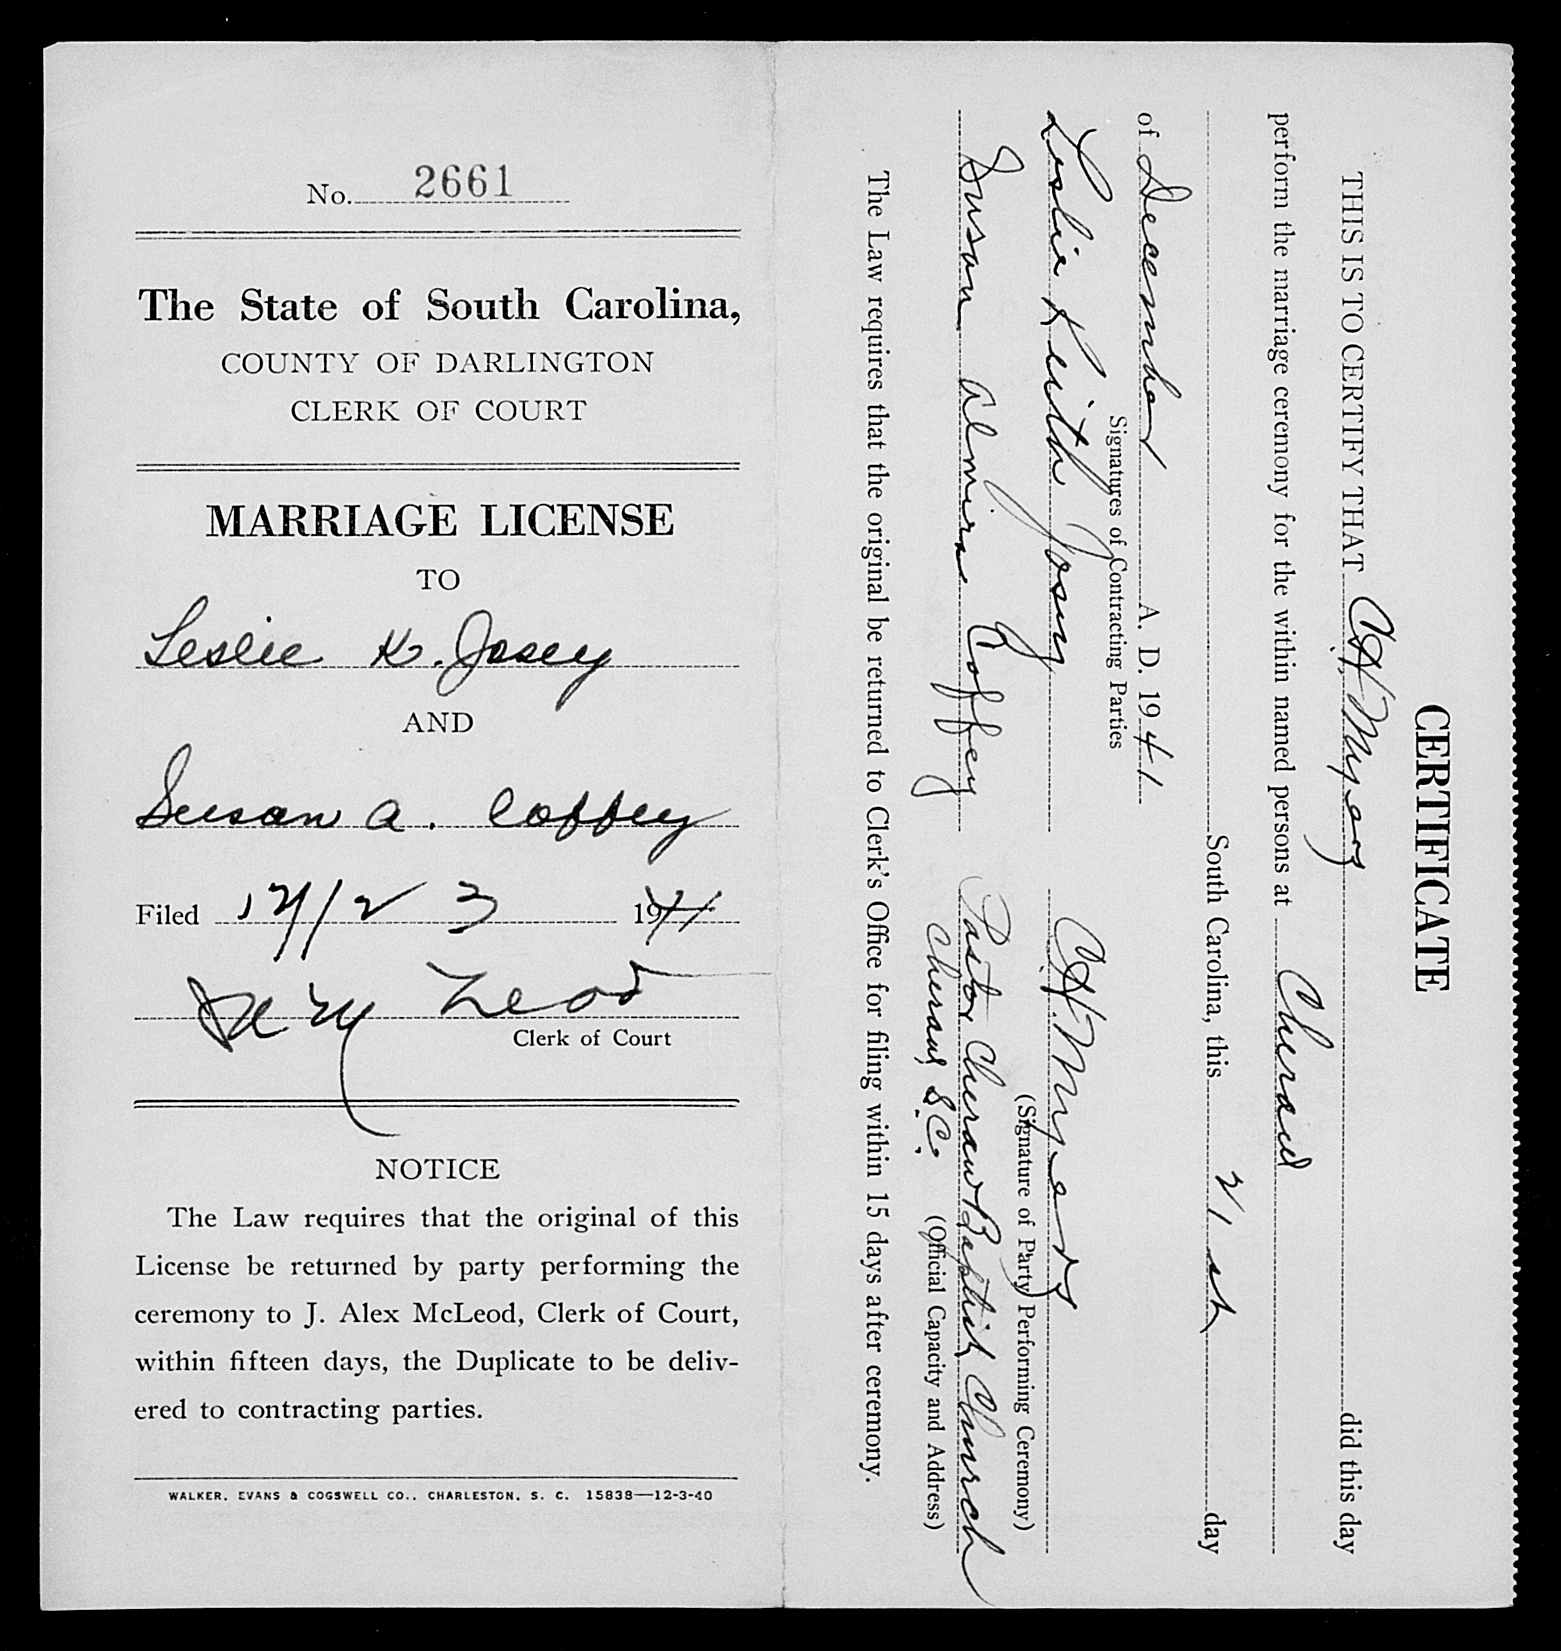 No. 2661
The State of South Carolina,
COUNTY OF DARLINGTON
CLERK OF COURT
MARRIAGE LICENSE
TO
Leslie K. Josey
AND
Susan A. Coffey
Filed 12/23 1941
J A McLeod
Clerk of Court
NOTICE
The Law requires that the original of this
License be returned by party performing the
ceremony to J. Alex McLeod, Clerk of Court,
within fifteen days, the Duplicate to be deliv-
ered to contracting parties.
WALKER, EVANS & COGSWELL CO., CHARLESTON, S. C. 15838—12-3-40
CERTIFICATE
THIS IS TO CERTIFY THAT C.H. Myers did this day
perform the marriage ceremony for the within named persons at Cheraw
South Carolina, this 21st day
of December A. D. 1941
Signatures of Contracting Parties
Leslie Keith Josey C.H. Myers
(Signature of Party Performing Ceremony)
Susan Almira Coffey Pastor Cheraw Baptist Church
Cheraw, S.C. (Official Capacity and Address)
The Law requires that the original be returned to Clerk's Office for filing within 15 days after ceremony.